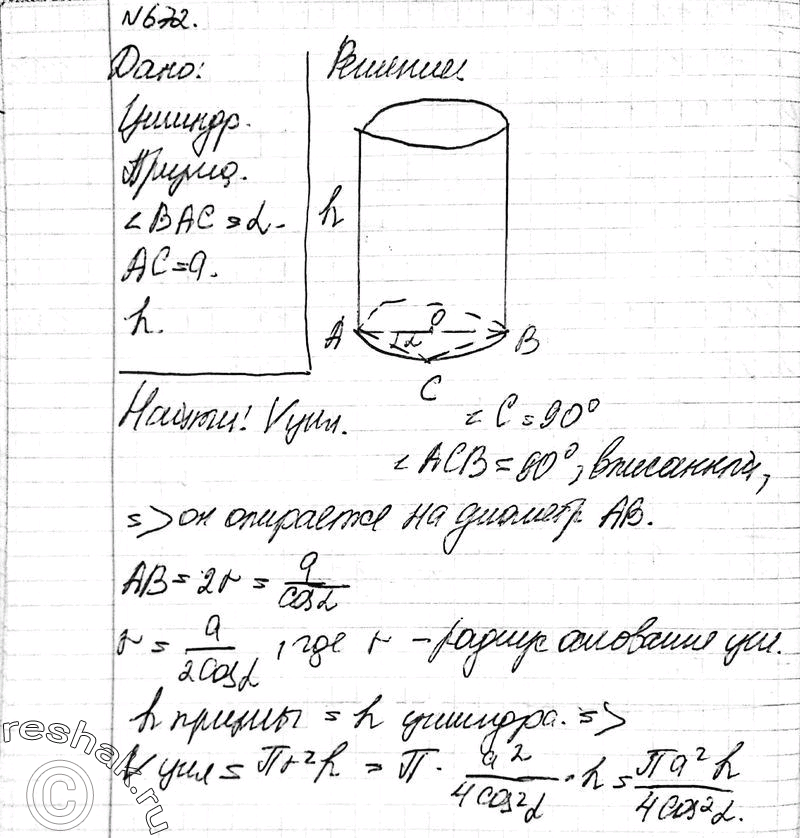 №672.
Дано:
Решение
Цилиндр.
Призма.
∠BAC = α.
AC = a.
h.
h
A
O
α
B
C
Найти: Vцил.
∠C = 90°
∠ACB = 90°, вписанный,
=> он опирается на диаметр AB.
AB = 2r = a/cosα
r = a/2cosα, где r – радиус основания цил.
h призмы = h цилиндра. =>
V цил = πr²h = π · a²/4cos²α · h = πa²h/4cos²α.
reshak.ru
©